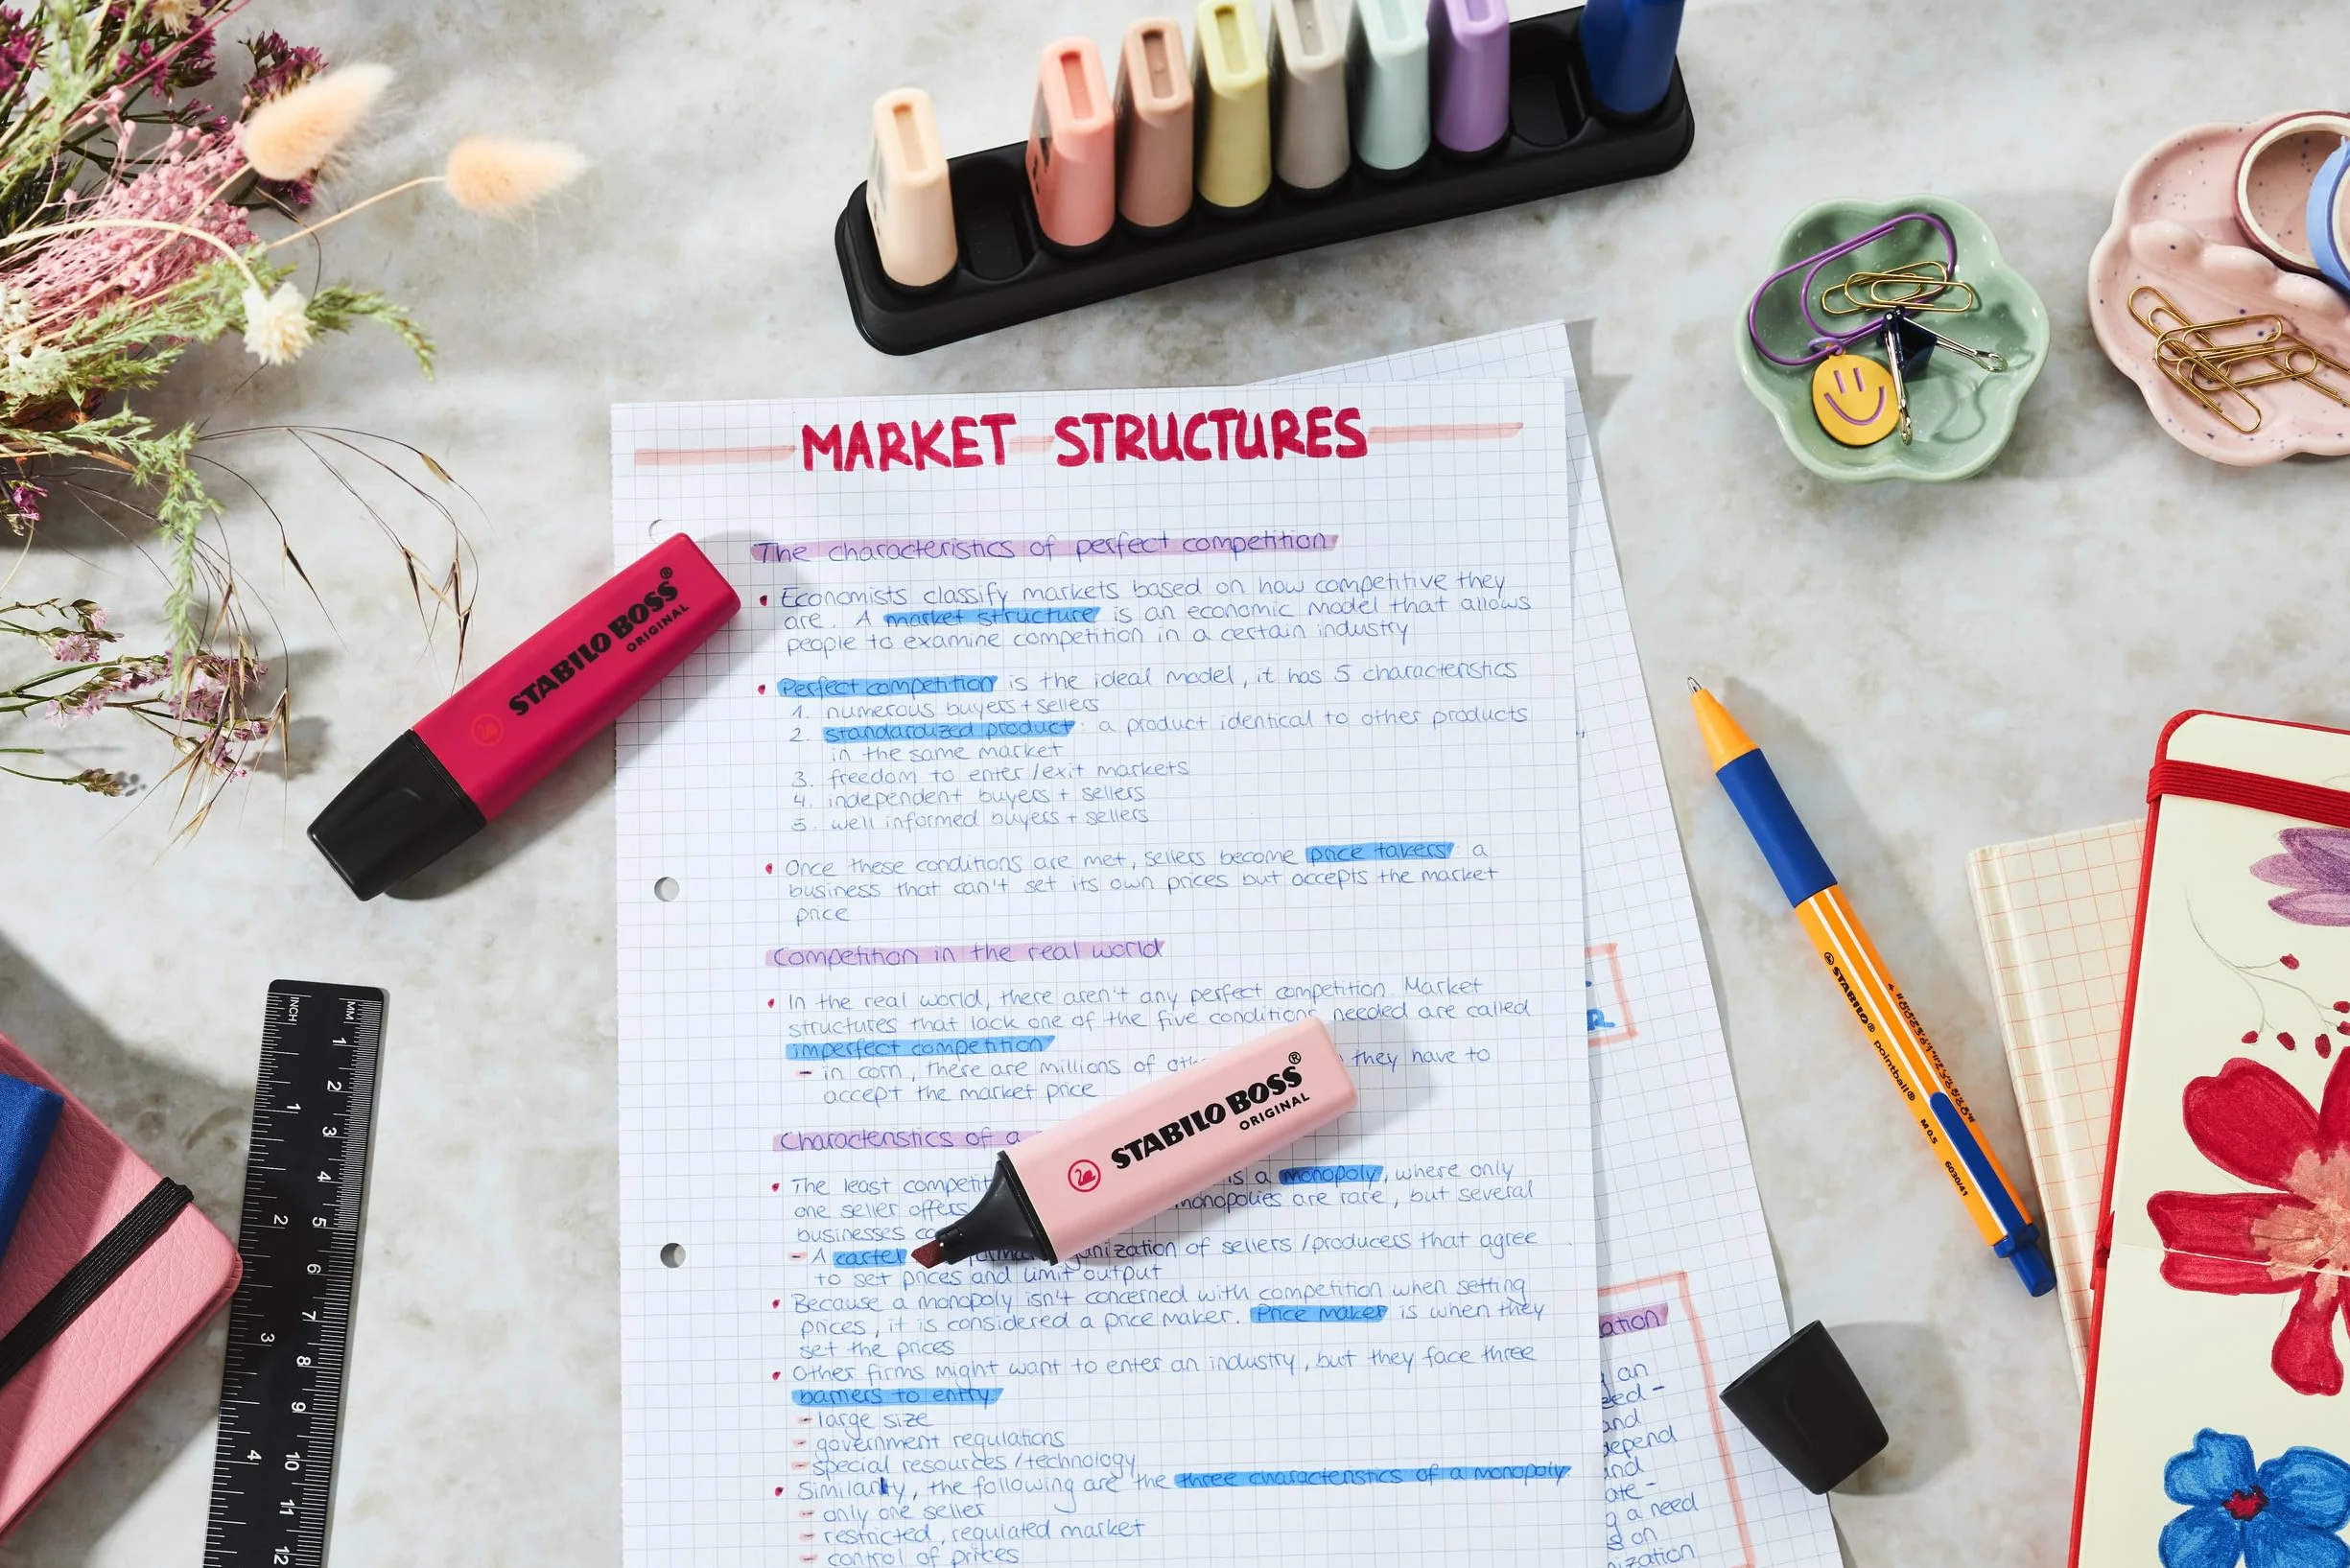 MARKET STRUCTURES
The characteristics of perfect competition
Economists classify markets based on how competitive they
are. A market structure is an economic model that allows
people to examine competition in a certain industry
Perfect competition is the ideal model, it has 5 characteristics
1. numerous buyers + sellers
2. standardized product: a product identical to other products
in the same market
3. freedom to enter/exit markets
4. independent buyers + sellers
5. well informed buyers + sellers
Once these conditions are met, sellers become price takers: a
business that can't set its own prices but accepts the market
price
Competition in the real world
In the real world, there aren't any perfect competition. Market
structures that lack one of the five conditions needed are called
imperfect competition
- in corn, there are millions of they have to
accept the market price
Characteristics of a
The least is a monopoly, where only
one seller offers monopolies are rare, but several
businesses
- A cartel of sellers/producers that agree
to set prices and limit output
Because a monopoly isn't concerned with competition when setting
prices, it is considered a price maker. Price maker is when they
set the prices
Other firms might want to enter an industry, but they face three
barriers to entry
- large size
- government regulations
- special resources/technology
Similarly, the following are the three characteristics of a monopoly:
- only one seller
- restricted, regulated market
- control of prices
STABILO BOSS®
ORIGINAL
STABILO BOSS®
ORIGINAL
STABILO® pointball® M 0.5 6030/41
INCH MM
1 2 3 4
1 2 3 4 5 6 7 8 9 10 11 12
R
ation
an
and
depend
and
ate-
g a need
s on
nization